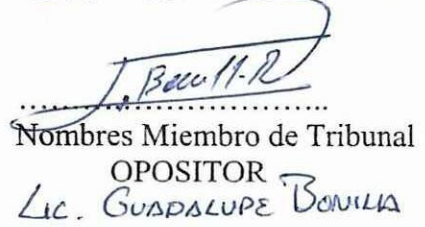 ..............................
Nombres Miembro de Tribunal
OPOSITOR
Lic. GUADALUPE BONILLA